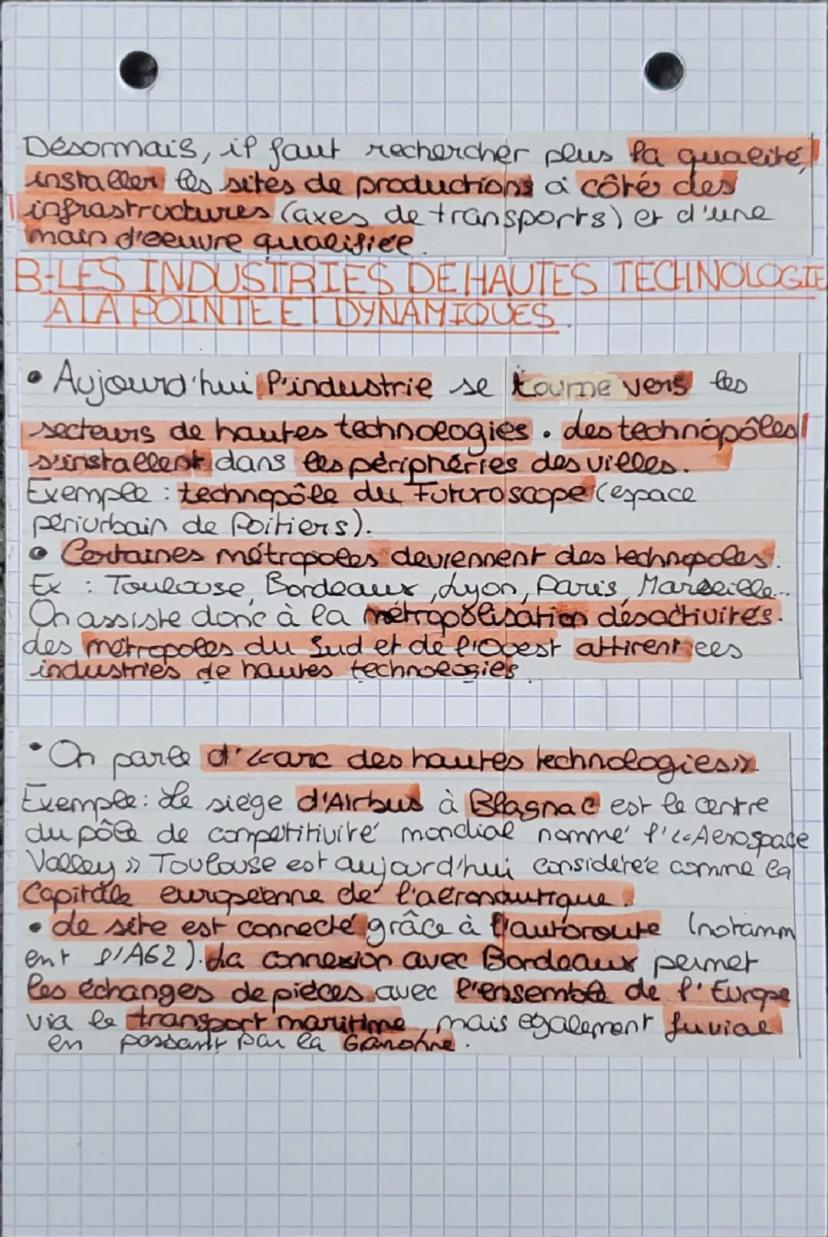 Désormais, il faut rechercher plus la qualité,
installer les sites de productions à côtés des
infrastructures (axes de transports) et d'une
main d'oeuvre qualifiée.
B-LES INDUSTRIES DE HAUTES TECHNOLOGIE
A LA POINTE ET DYNAMIQUES.
• Aujourd'hui l'industrie se tourne vers les
secteurs de hautes technologies. des technopôles
s'installent dans les périphéries des villes.
Exemple : technopôle du Futuroscope (espace
périurbain de Poitiers).
• Certaines métropoles deviennent des technopoles.
Ex : Toulouse, Bordeaux, Lyon, Paris, Marseille..
On assiste donc à la métropolisation des activités.
des métropoles du Sud et de l'Ouest attirent les
industries de hautes technologies
• On parle d'«arc des hautes technologies».
Exemple: Le siège d'Airbus à Blagnac est le centre
du pôle de compétitivité mondial nommé l'«Aerospace
Valley» Toulouse est aujourd'hui considérée comme la
Capitale européenne de l'aéronautique.
• Le site est connecté grâce à l'autoroute (notamm
ent l'A62). La connexion avec Bordeaux permet
les échanges de pièces avec l'ensemble de l'Europe
via le transport maritime, mais également fuvial
en passant par la Garonne.